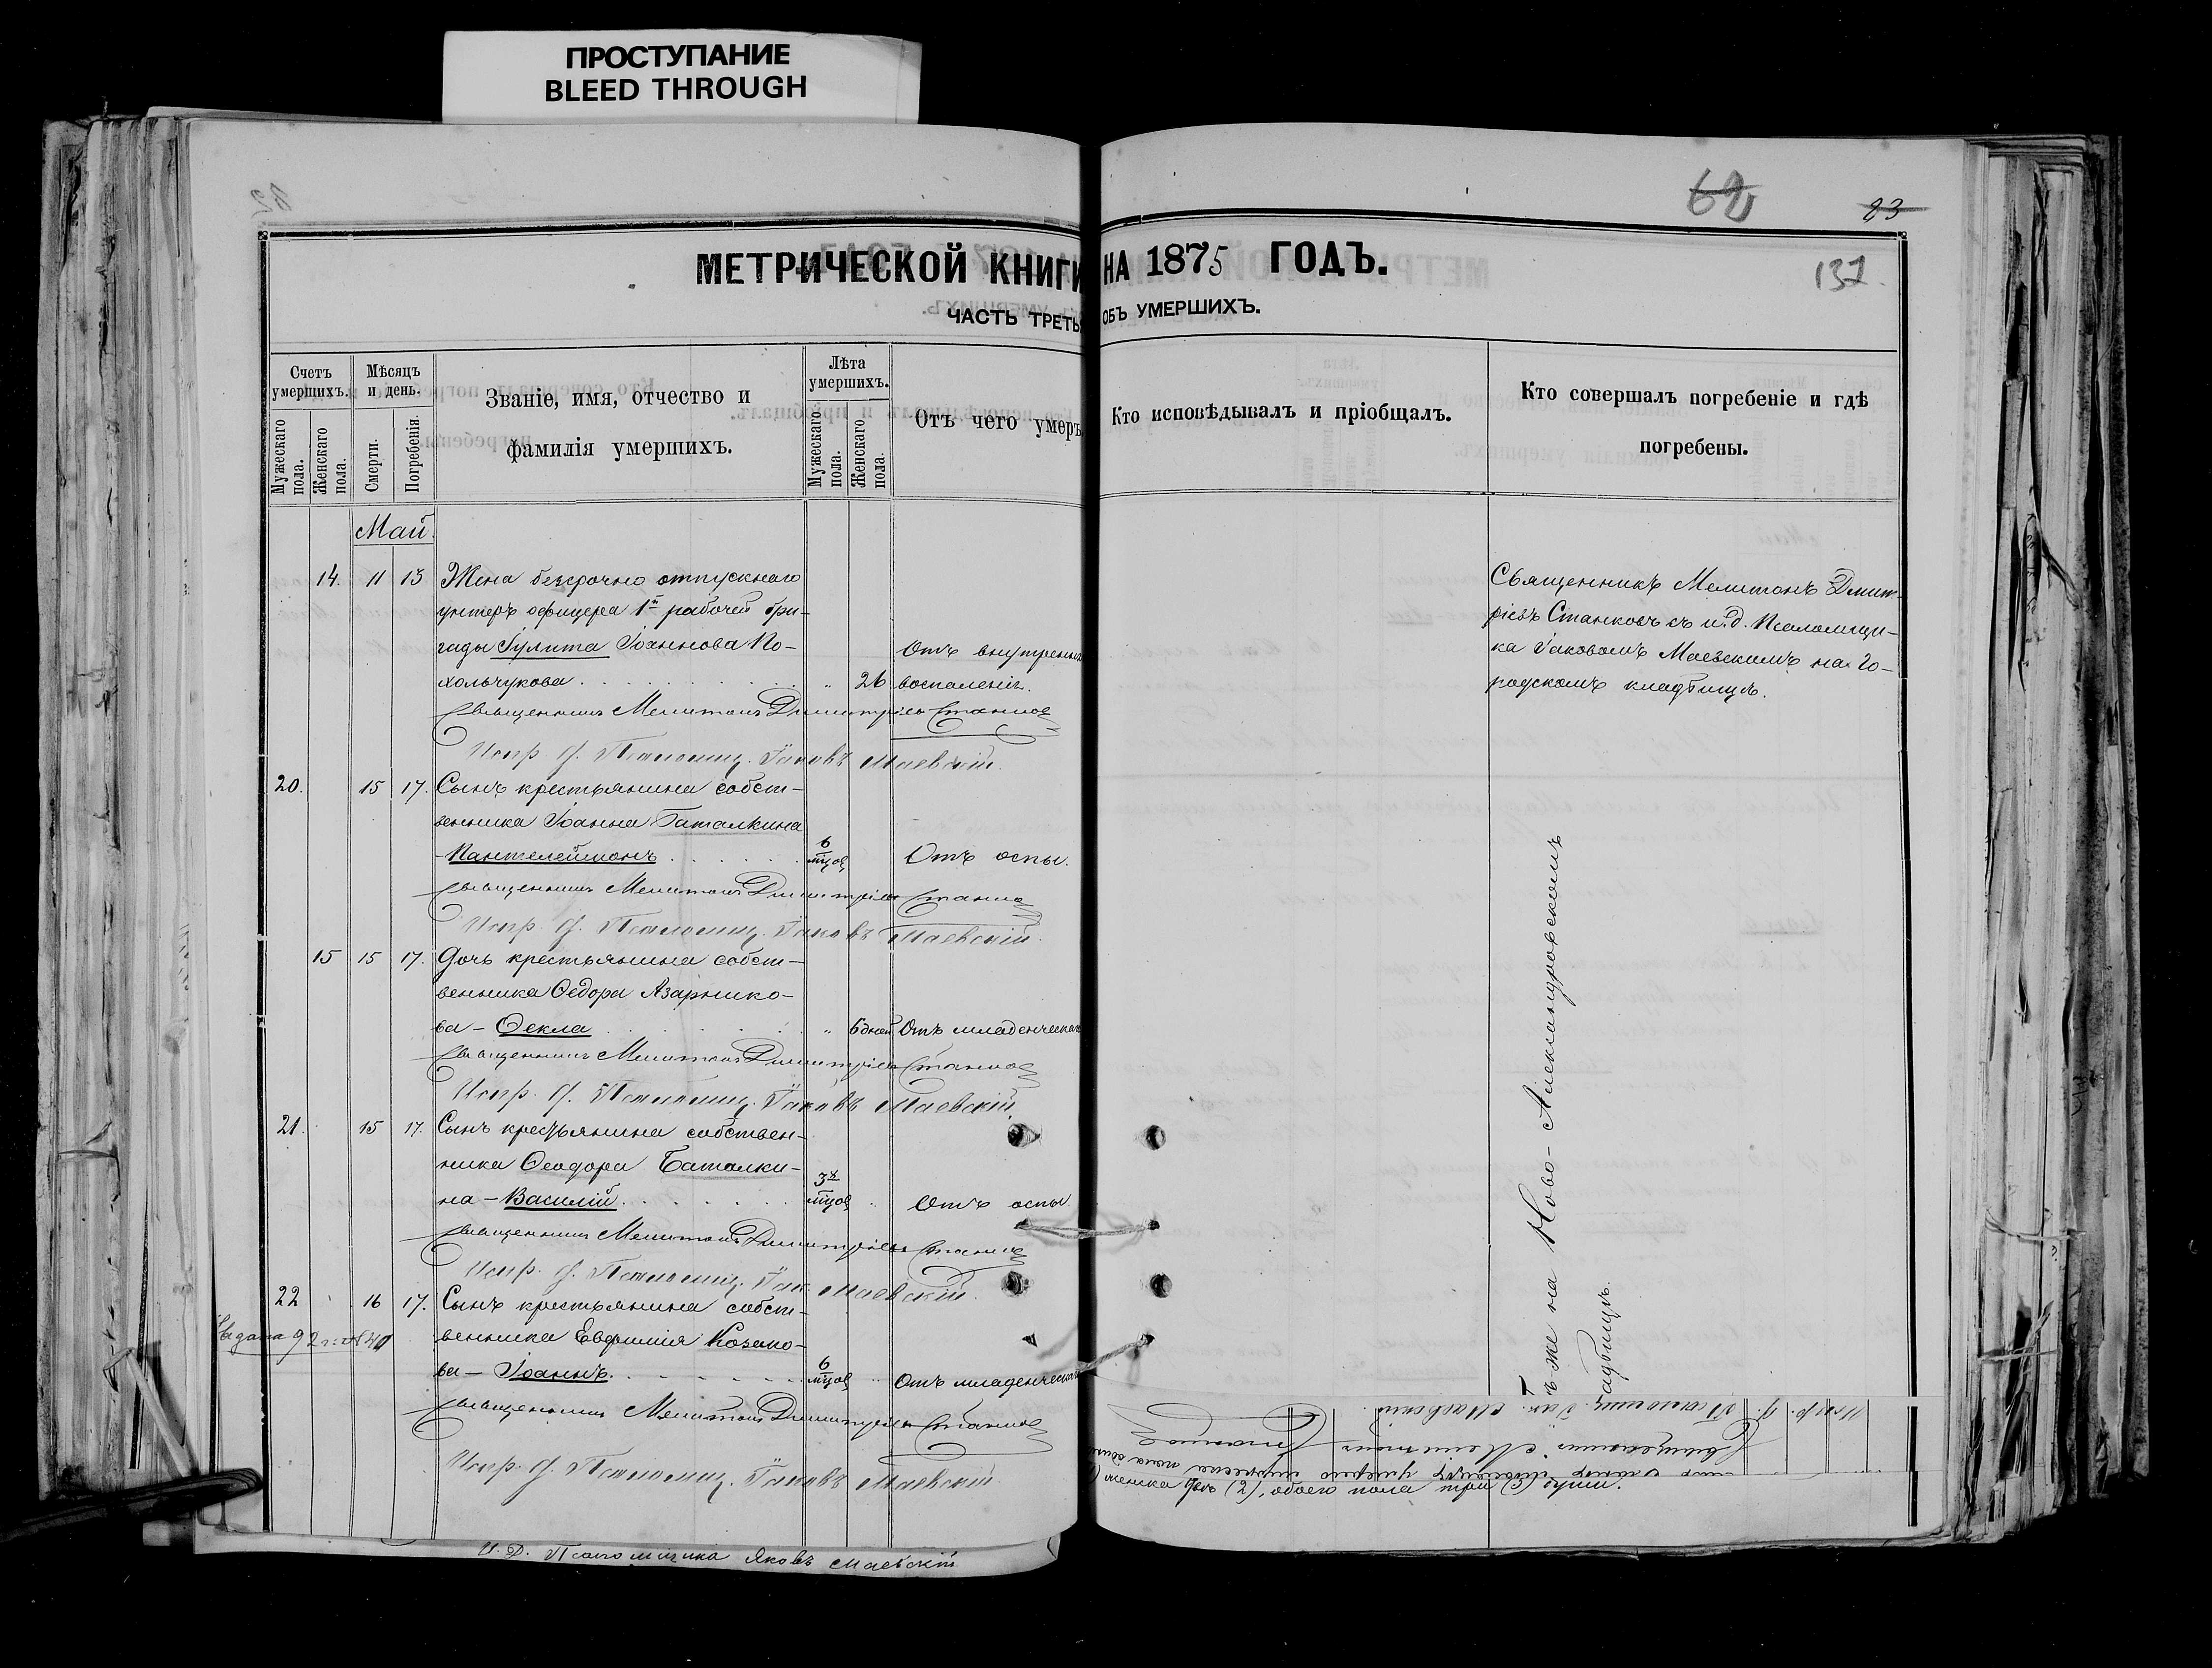 ПРОСТУПАНИЕ
BLEED THROUGH
62
23
137.
МЕТРИЧЕСКОЙ КНИГИ НА 1875 ГОДЪ.
ЧАСТЬ ТРЕТЬ ОБЪ УМЕРШИХЪ.
Счетъ умершихъ.
Мужескаго пола.
Женскаго пола.
Мѣсяцъ и день.
Смерти.
Погребенія.
Званіе, имя, отчество и
фамилія умершихъ.
Лѣта умершихъ.
Мужескаго пола.
Женскаго пола.
Отъ чего умеръ.
Кто исповѣдывалъ и пріобщалъ.
Кто совершалъ погребеніе и гдѣ
погребены.
Май.
14. 11 13 Жена безсрочно отпускнаго
унтеръ офицера 1й рабочей бри-
гады Іулита Іоаннова По-
хольчукова . . . . . . . . „ 26
Отъ внутренн
воспаленія.
Священникъ Мелитонъ Дмит-
ріевъ Станковъ съ и.д. Псаломщи-
ка Іаковомъ Маевскимъ на го-
родскомъ кладбищѣ.
Священникъ Мелитонъ Димитріевъ Станковъ
Испр. д. Псаломщ. Іаковъ Маевскій.
20. 15 17. Сынъ крестьянина собст-
венника Іоанна Баталкина
-Пантелеймонъ . . . . . . 6 мцов Отъ оспы.
Священникъ Мелитонъ Димитріевъ Станковъ
Испр. д. Псаломщ. Іаковъ Маевскій.
15 15 17. Дочь крестьянина собст-
венника Ѳедора Азарнико-
ва - Ѳекла . . . . . . „ 6 дней Отъ младенческаго
Священникъ Мелитонъ Димитріевъ Станковъ
Испр. д. Псаломщ. Іаковъ Маевскій.
21. 15 17. Сынъ крестьянина собствен-
ника Ѳеодора Баталки-
на - Василій . . . . . . 3х мцов „ Отъ оспы.
Священникъ Мелитонъ Димитріевъ Станковъ
Испр. д. Псаломщ. Іак. Маевскій.
22 16 17. Сынъ крестьянина собст-
венника Евфимія Козако-
ва - Іоаннъ. . . . . . . 6 мцов „ Отъ младенческаго
Священникъ Мелитонъ Димитріевъ Станковъ
Испр. д. Псаломщ. Іаковъ Маевскій.
ѣ же на Ново-Александровскомъ
адбищѣ.
Испр. д. Псаломщ. Іак. Маевскій.
Священникъ Мелитонъ Станковъ
умерло мужеска пола
женска двѣ (2), обоего пола три (3) души.
И. Д. Псаломщика Яковъ Маевскій